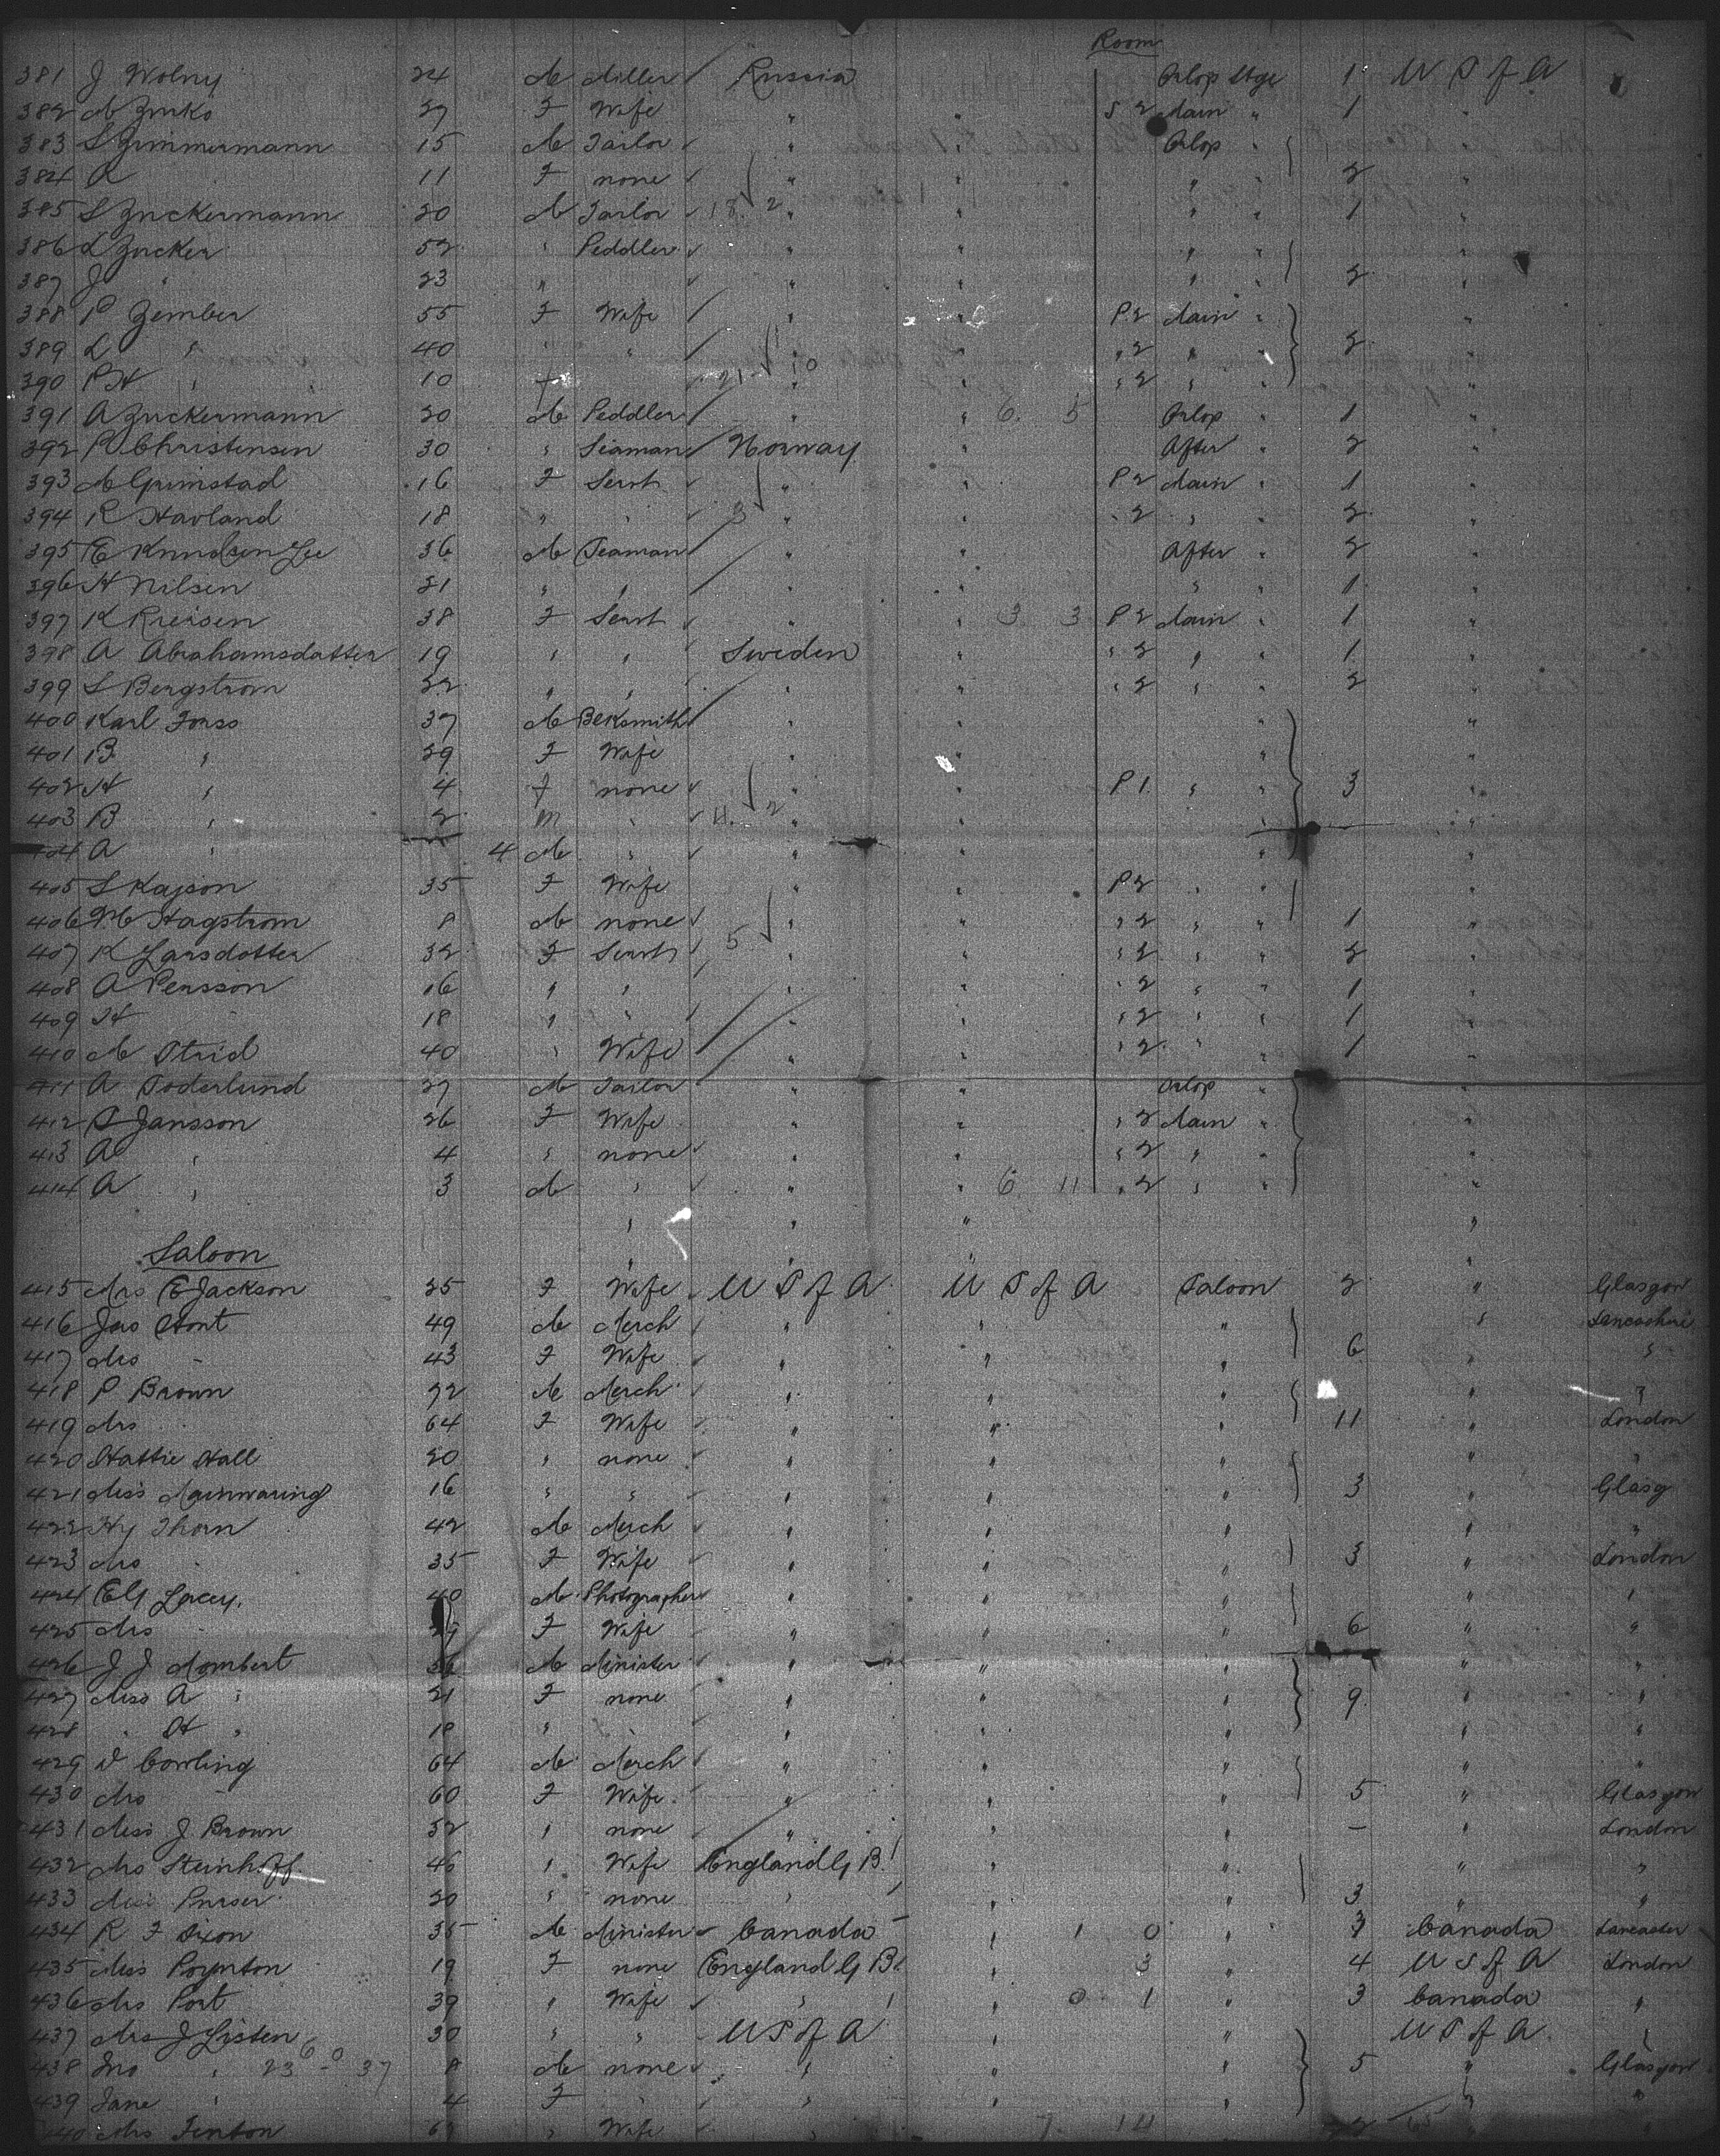 Room
381 J Wolny 24 M Miller Russia Orlop Stge 1 U S of A
382 M Zurko 27 F Wife " " S 2 Main " 1 "
383 S Zimmermann 15 M Tailor " " Orlop "
384 A " 11 F none " " " " 2 "
385 S Zuckermann 20 M Tailor 18 2 " " " " 1 "
386 L Zucker 52 " Peddler " " " "
387 J " 23 " " " " " 2 "
388 P Zember 55 F Wife " " P. 2 Main " "
389 L " 40 " " " " " 2 " " 2 "
390 " 10 f 21 10 " " " 2 " "
391 A Zuckermann 20 M Peddler " " 6. 5 Orlop " 1 "
392 P Christensen 30 " Seaman Norway " After " 2 "
393 M Grimstad 16 F Servt " " P 2 Main " 1 "
394 R Havland 18 " " 3 " " " 2 " " 2 "
395 E Knudsen Lee 36 M Seaman " " After " 2 "
396 H Nilsen 21 " " " " " " 1 "
397 K Rreisen 38 F Servt " " 3 3 P 2 Main " 1 "
398 A Abrahamsdatter 19 " " Sweden " " 2 " " 1 "
399 S Bergstrom 22 " " " " " 2 " " 2 "
400 Karl Forss 37 M Blksmith " " " "
401 B " 29 F Wife " " " "
402 H " 4 f none " " P 1. " " 3 "
403 B " 2 m " 11. 2 " " "
404 A " 4 M " " " " "
405 S Kajson 35 F Wife " " P 2 " " "
406 Hagstrom 8 M none " " " 2 " " 1 "
407 K Larsdotter 32 F Servt 5 " " " 2 " " 2 "
408 A Persson 16 " " " " " 2 " " 1 "
409 H " 18 " " " " " 2 " " 1 "
410 M Strid 40 " Wife " " " 2 " " 1 "
411 A Soderlund 27 M Tailor " " Orlop " "
412 S Jansson 26 F Wife " " " 2 Main " "
413 A " 4 " none " " " 2 " " "
414 A " 3 M " " " 6 11 " 2 " " "
" " " "
Saloon " " " "
415 Mrs E Jackson 25 F Wife U S of A U S of A Saloon 2 " Glasgow
416 Jas Stont 49 M Merch " " " " Lancashire
417 Mrs " 43 F Wife " " " 6 " "
418 P Brown 72 M Merch " " " " "
419 Mrs " 64 F Wife " " " 11 " London
420 Hattie Hall 20 " none " " " " "
421 Miss Mainwaring 16 " " " " " 3 " Glasg
422 Hy Thorn 42 M Merch " " " " "
423 Mrs " 35 F Wife " " " 3 " London
424 Lacey. 40 M Photographer " " " " "
425 Mrs F Wife " " " 6 " "
426 J J Mombert 56 M Minister " " " " "
427 Miss A " 21 F none " " " 9 " "
428 " H " 18 " " " " " " "
429 D Cowling 64 M Merch " " " " "
430 Mrs " 60 F Wife " " " 5 " Glasgow
431 Miss J Brown 52 " none " " " — " London
432 Mrs Steinhoff 46 " Wife England G B. " " " "
433 Miss Purser 20 " none " " " 3 " "
434 R F Dixon 35 M Minister Canada " 1 0 " 3 Canada Lancaster
435 Miss Poynton 19 F none England G B. " 3 " 4 U S of A London
436 Mrs Port 39 " Wife " " 0 1 " 3 Canada "
437 Mrs J Listen 30 " " U S of A " " U S of A. "
438 Jno " 23 6 - 0 37 8 M none " " " 5 " Glasgow
439 Jane " 4 F " " " " " "
440 Mrs Fenton " Wife " 7. 14 2